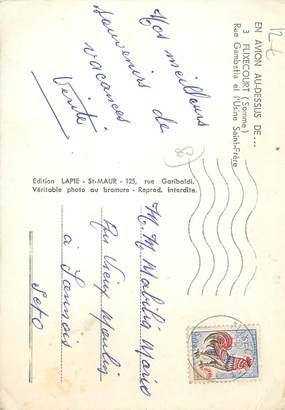 EN AVION AU-DESSUS DE...
3 FLIXECOURT (Somme)
Rue Gambetta et l'Usine Saint-Frère
Mes meilleurs
souvenirs de
vacances
Edition LAPIE - St-MAUR - 125, rue Garibaldi.
Véritable photo au bromure - Reprod. Interdite.
M. M Mabille Mario
Vieux Moulin
à Sannois
S et O